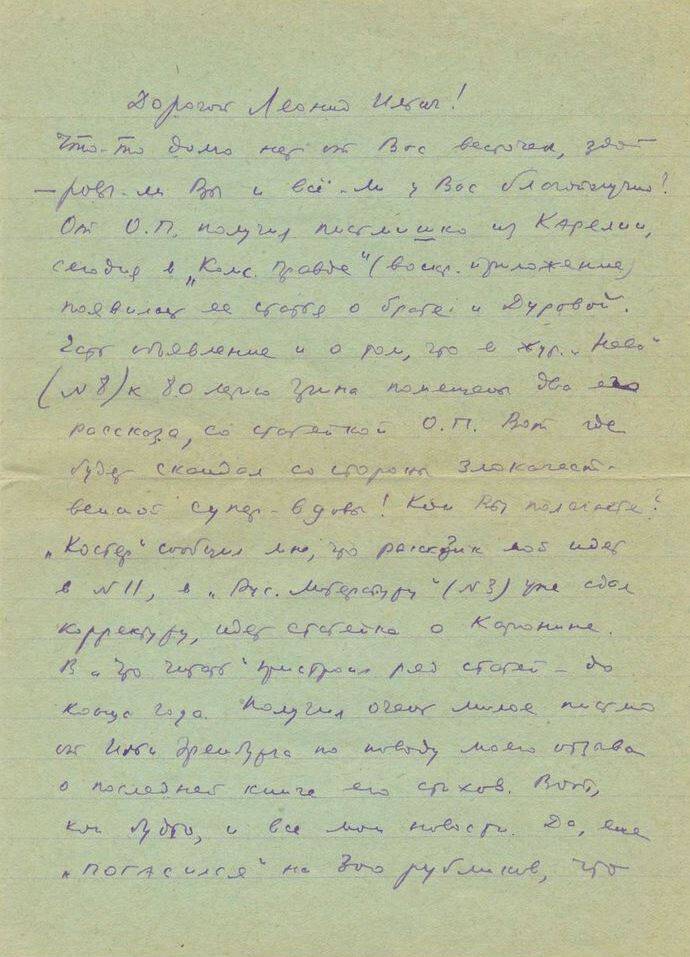 Дорогой Леонид Ильич!
Что-то давно нет от Вас весточек, здо-
-ровы-ли Вы и всё-ли у Вас благополучно?
От О.П. получил письмишко из Карелии,
сегодня в „Комс. Правде" (воскр. приложение)
появилась ее статья о брате и Дуровой.
Есть объявление и о том, что в жур. „Нева"
(№ 8) к 80 летию Грина помещены два его
рассказа, со статейкой О.П. Вот где
будет скандал со стороны злокачест-
венной супер-вдовы! Как Вы полагаете?
„Костер" сообщил мне, что рассказик мой идет
в № 11, в „Рус. Литературу" (№ 3) уже сдал
корректуру, идет статейка о Каронине.
В „Что читать" пристроил ряд статей – до
конца года. Получил очень милое письмо
от Ильи Эренбурга по поводу моего отзыва
о последней книге его стихов. Вот,
как будто, и все мои новости. Да, еще
„погасился" на 300 рубликов, что